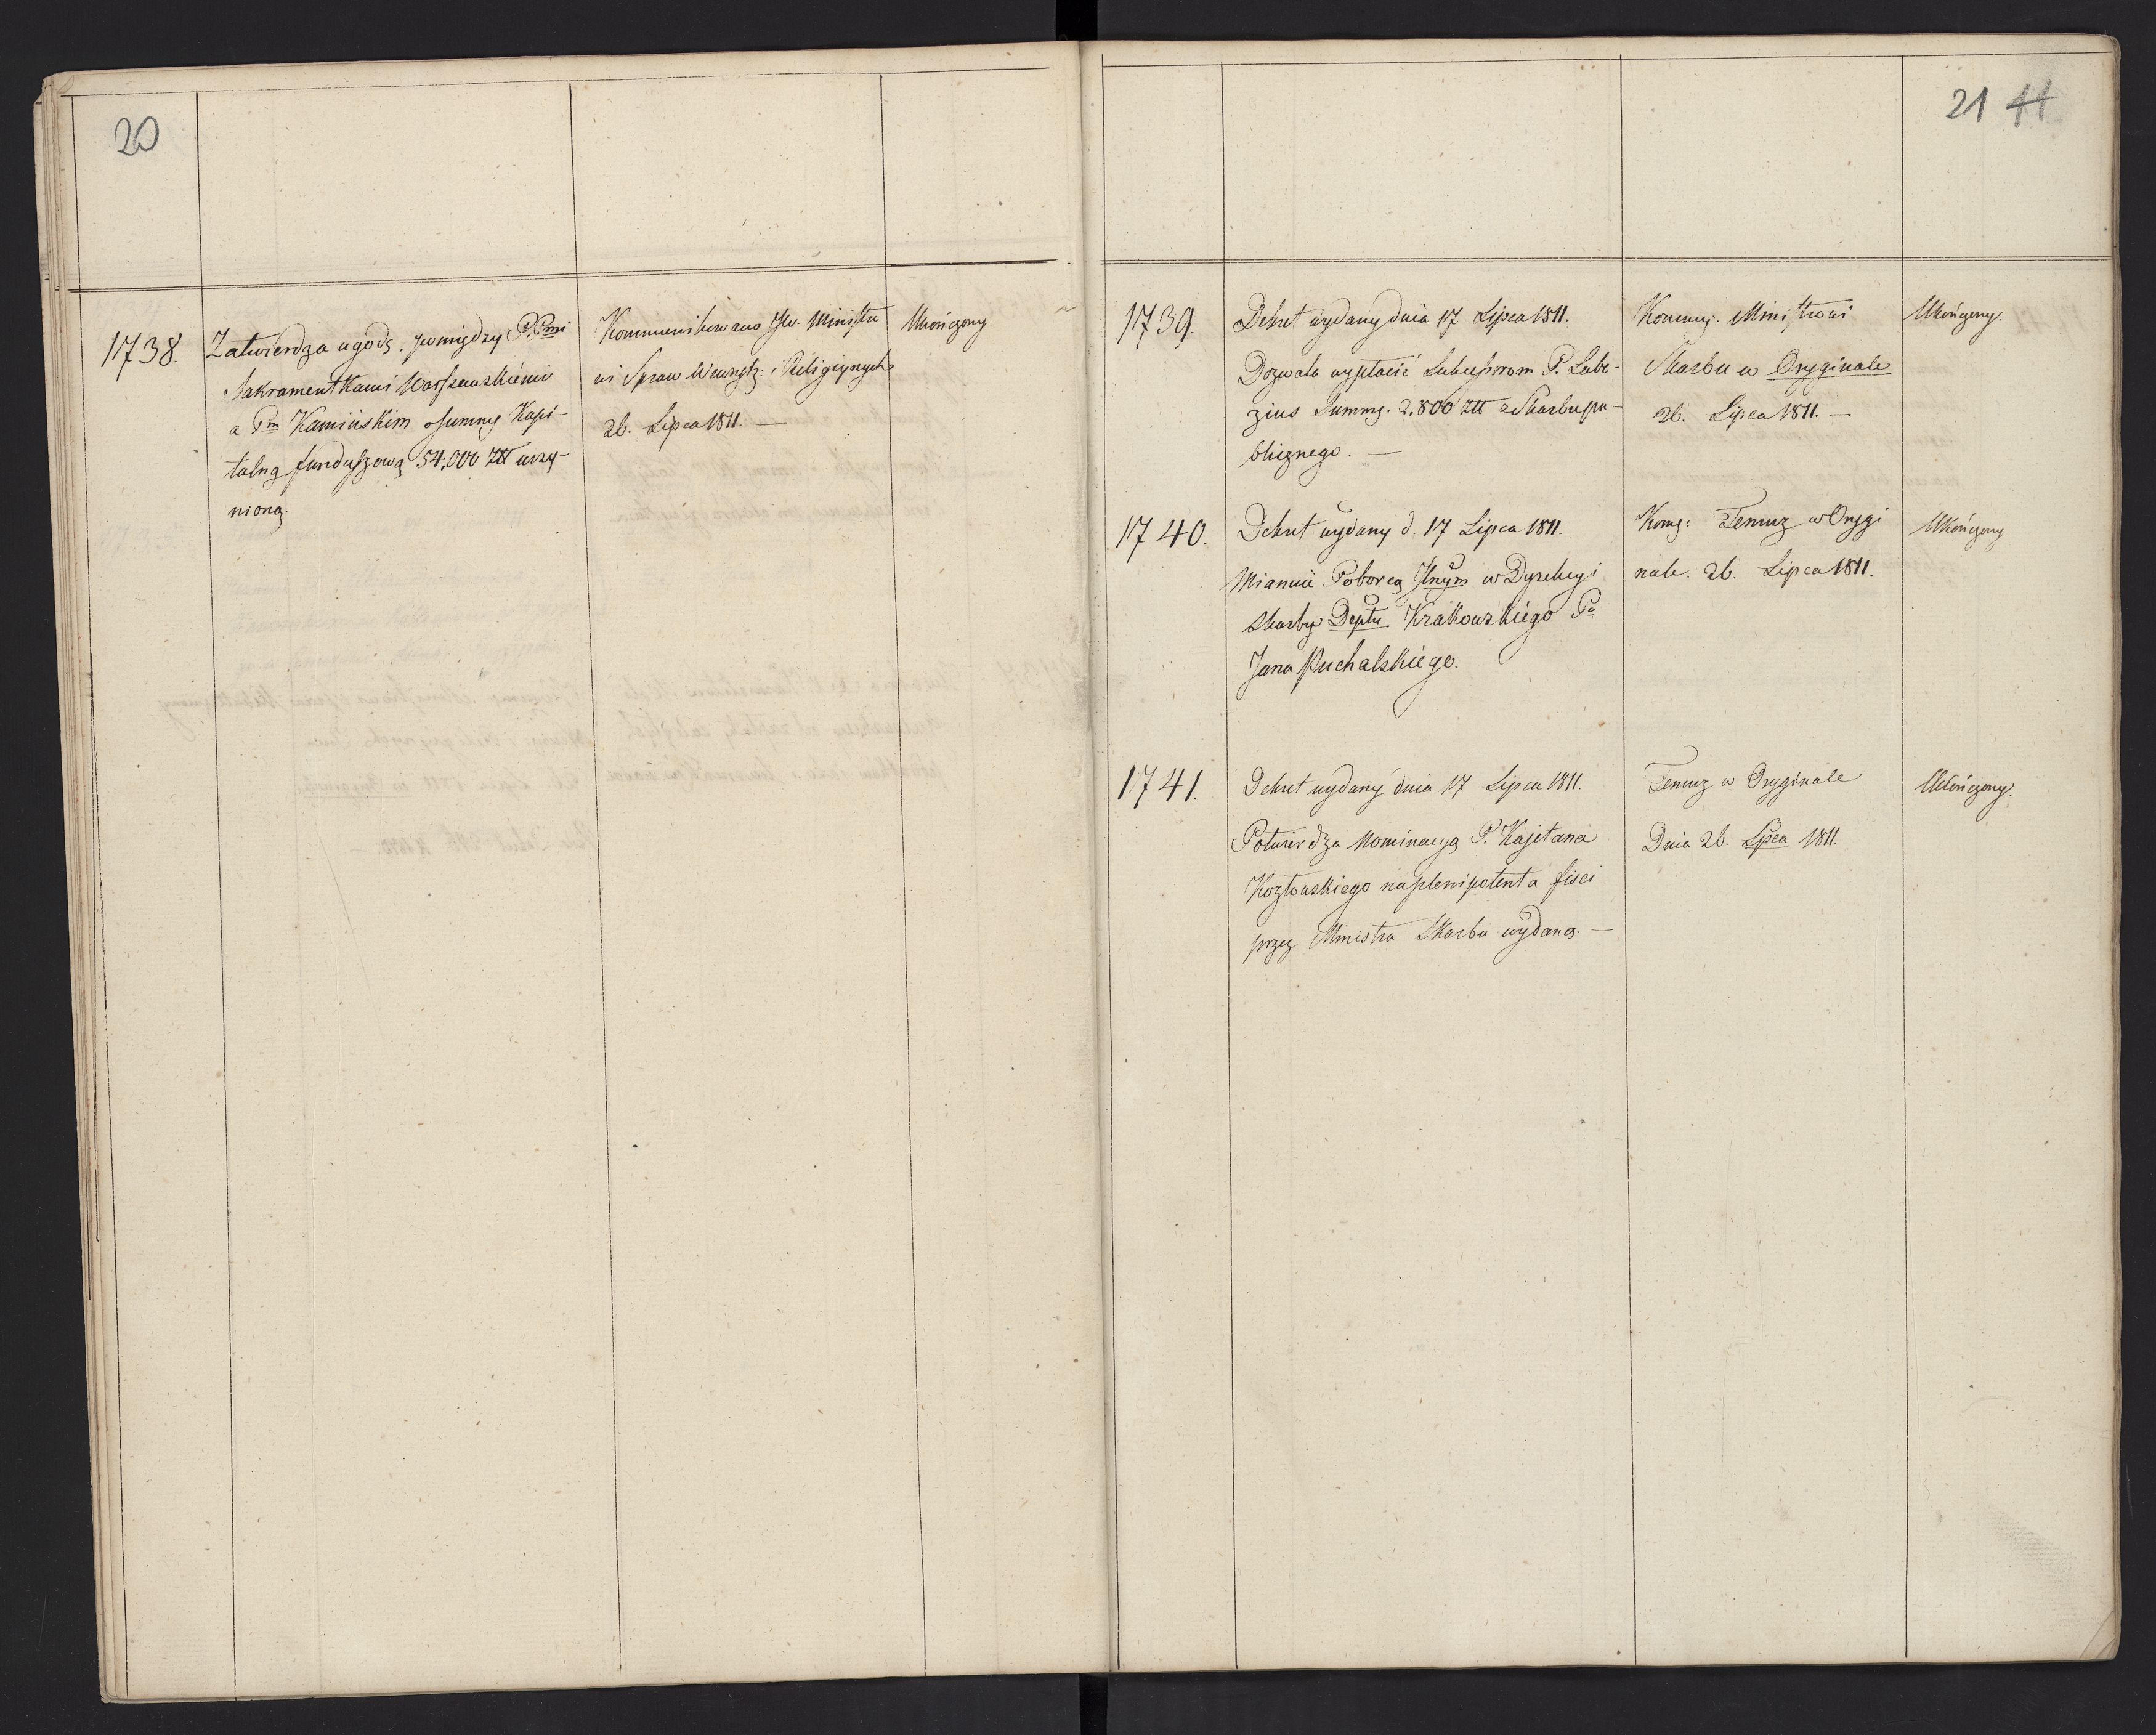 20
1738.
Zatwierdza ugodę. pomiędzy PPmi
Sakramentkami Warszawskiémi
a Pm Kamińskim o summę Kapi-
talną funduszową 54,000 Złł uczy-
nioną.
Kommunikowano JW. Ministro
wi Spraw Wewnętz: i Religiynych
26. Lipca 1811. —
Ukończony.
21 41
1739.
Dekret wydany dnia 17 Lipca 1811.
Dozwala wypłacić Sukcessorom P. Lube-
zius Summę. 2,800 Złł z Skarbu pu-
blicznego. —
Kommu. Ministrowi
Skarbu w Oryginale
26. Lipca 1811. —
Ukończony.
1740.
Dekret wydany d. 17 Lipca 1811.
Mianuie Poborcą Jlnym w Dyrekcyi
Skarby Deptu Krakowskiego Pa
Jana Puchalskiego.
Komg: Temuz w Orygi
nale. 26. Lipca 1811.
Ukończony
1741.
Dekret wydany dnia 17 Lipca 1811.
Potwierdza Nominacyą P. Kajetana
Kozłowskiego na plenipotenta fisci
przez Ministra Skarbu wydaną. —
Temuz w Oryginale
Dnia 26. Lipca 1811.
Ukończony.